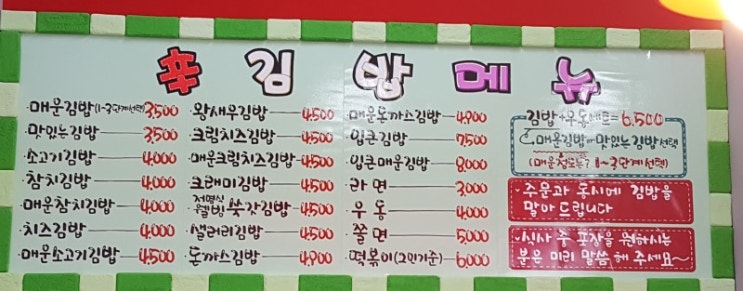 辛김밥메뉴
·매운김밥(1~3단계선택) 3,500
·맛있는김밥 3,500
·소고기김밥 4,000
·참치김밥 4,000
·매운참치김밥 4,000
·치즈김밥 4,000
·매운소고기김밥 4,500
·왕새우김밥 4,500
·크림치즈김밥 4,500
·매운크림치즈김밥 4,500
·크래미김밥 4,500
쑥갓김밥 4,500
·샐러리김밥 4,500
·돈까스김밥 4,900
·매운돈까스김밥 4,900
·입큰김밥 7,500
·입큰매운김밥 8,000
·라면 3,000
·우동 4,000
·쫄면 5,000
·떡볶이(2인기준) 6,000
김밥+우동세트=6,500
매운김밥 or 맛있는김밥선택
(매운정도는? 1~3단계선택)
·주문과 동시에 김밥을
말아 드립니다
·식사 중 포장을 원하시는
분은 미리 말씀 해 주세요~